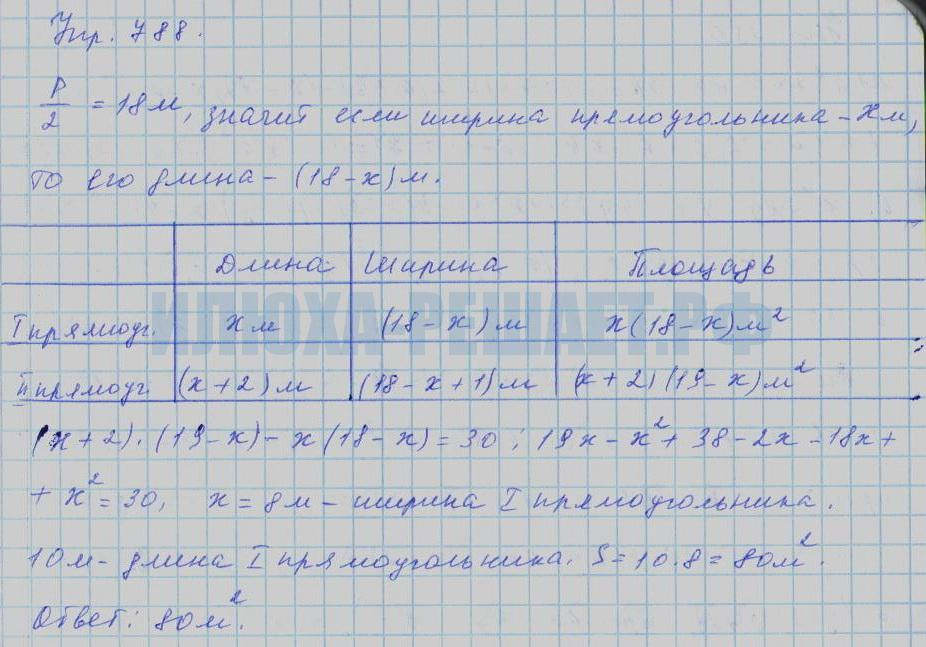 Упр. 788.
P/2 = 18 м, значит если ширина прямоугольника – x м,
то его длина – (18 – x) м.
Длина Ширина Площадь
I прямоуг. x м (18 – x) м x (18 – x) м²
II прямоуг. (x + 2) м (18 – x + 1) м (x + 2) (19 – x) м²
(x + 2) · (19 – x) – x (18 – x) = 30 ; 19x – x² + 38 – 2x – 18x +
+ x² = 30, x = 8 м – ширина I прямоугольника.
10 м – длина I прямоугольника. S = 10 · 8 = 80 м².
Ответ: 80 м².
ИЛЮХА-РЕШАЕТ.РФ